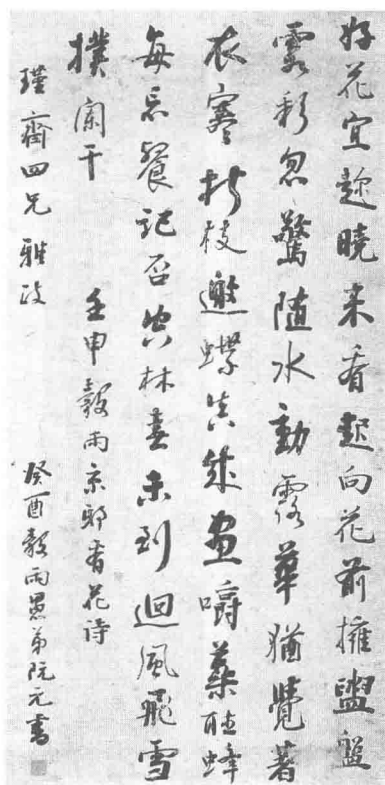 好花宜趂曉来看起向花前擁盥盤
霞彩忽驚隨水動露華猶覺著
衣寒折枝邀蝶真成畫嚼蕊聽蜂
每忘餐記否空林春未到迴風飛雪
撲闌干 壬申穀雨京邸看花詩
瑾齋四兄雅政 癸酉穀雨愚弟阮元書